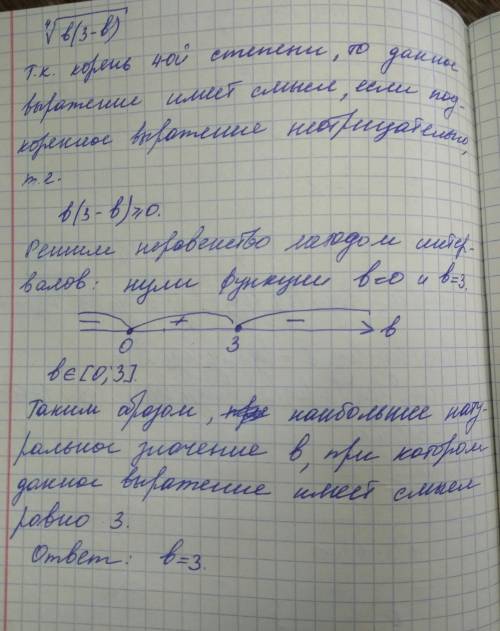 ⁴√b(3-b)
Т.к. корень 4ой степени, то данное
выражение имеет смысл, если под-
коренное выражение неотрицательно,
т.е.
b(3-b)≥0.
Решим неравенство методом интер-
валов: нули функции b=0 и b=3.
− + − b
0 3
b∈[0;3].
Таким образом, наибольшее нату-
ральное значение b, при котором
данное выражение имеет смысл
равно 3.
Ответ: b=3.